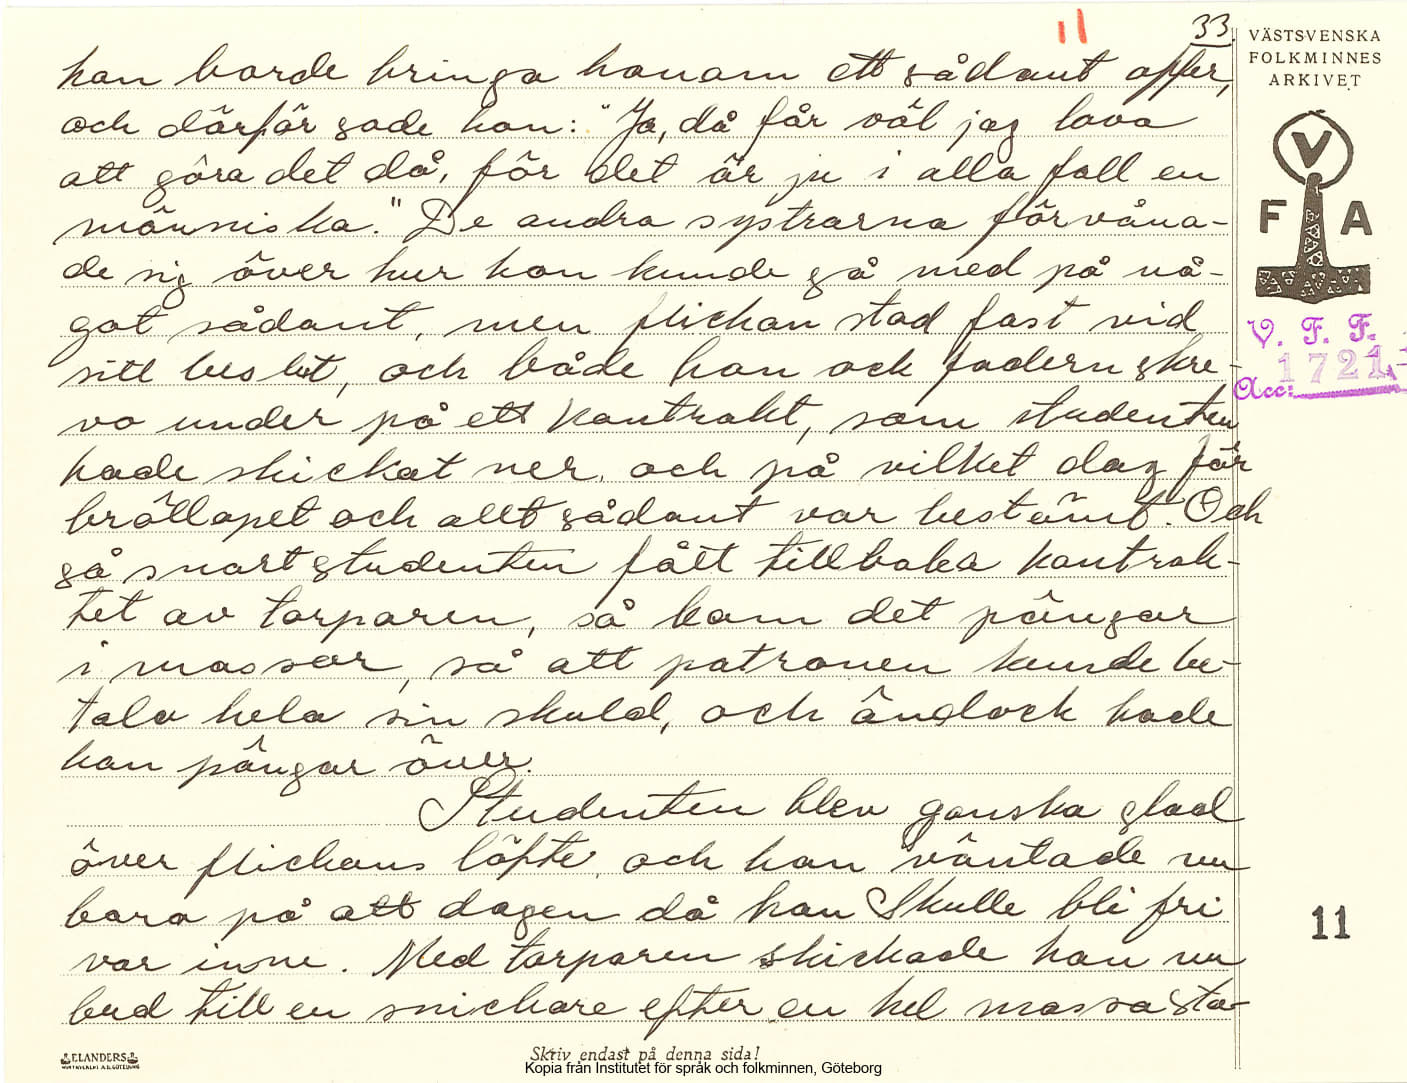 11
33.
VÄSTSVENSKA
FOLKMINNES
ARKIVET
hon borde bringa honom ett sådant offer,
och därför sade hon: "Ja, då får väl jag lova
att göra det då, för det är ju i alla fall en
människa." De andra systrarna förvåna-
de sig över hur hon kunde gå med på nå-
got sådant, men flickan stod fast vid
sitt beslut, och både hon och fadern skre-
vo under på ett kontrakt, som studenten
hade skickat ner, och på vilket dag för
bröllopet och allt sådant var bestämt. Och
så snart studenten fått tillbaka kontrak-
tet av torparen, så kom det pängar
i massor, så att patronen kunde be-
tala hela sin skuld, och ändock hade
han pängar över.
Studenten blev ganska glad
över flickans löfte, och han väntade nu
bara på att dagen då han skulle bli fri
var inne. Med torparen skickade han nu
bud till en snickare efter en hel massa sta-
V
F A
V. F. F.
1721
Acc:
11
ELANDERS
Skriv endast på denna sida!
Kopia från Institutet för språk och folkminnen, Göteborg